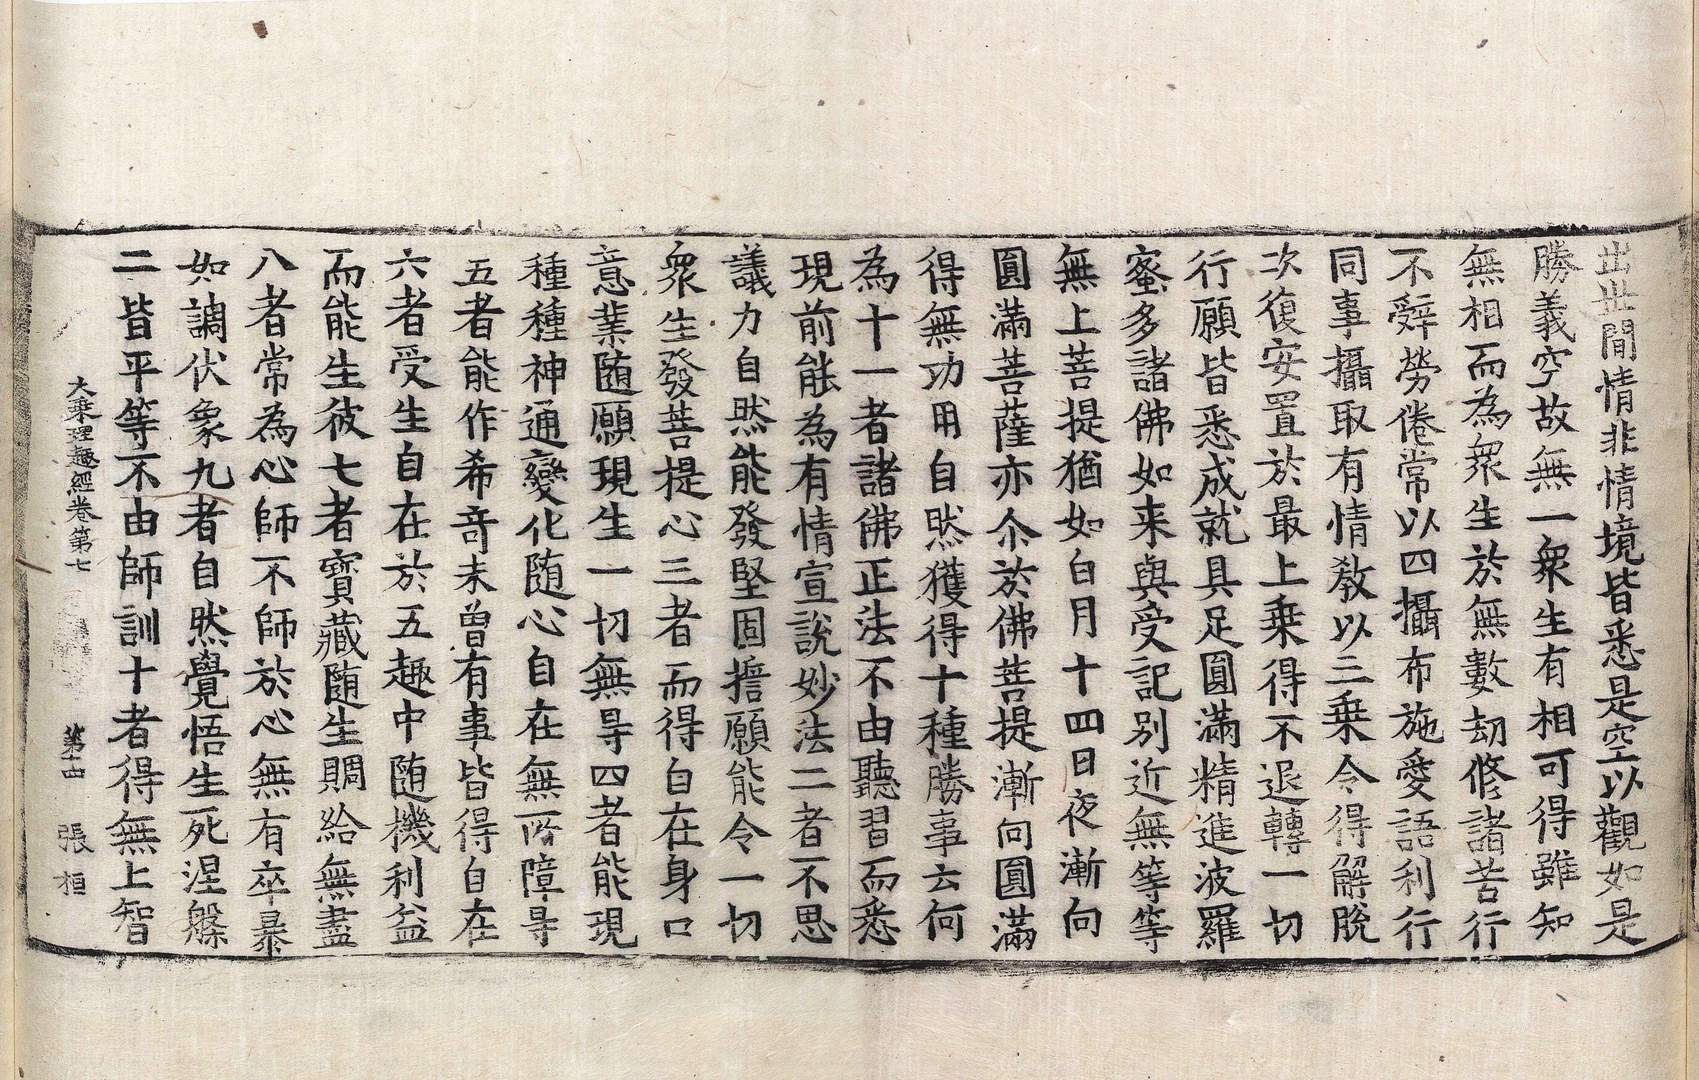 出世間情非情境皆悉是空以觀如是
勝義空故無一衆生有相可得雖知
無相而為衆生於無數劫修諸苦行
不辤勞倦常以四攝布施愛語利行
同事攝取有情教以三乗令得解脫
次復安置於最上乗得不退轉一切
行願皆悉成就具足圓滿精進波羅
蜜多諸佛如来與受記別近無等等
無上菩提猶如白月十四日夜漸向
圓滿菩薩亦尒於佛菩提漸向圓滿
得無功用自然獲得十種勝事云何
為十一者諸佛正法不由聽習而悉
現前能為有情宣說妙法二者不思
議力自然能發堅固擔願能令一切
衆生發菩提心三者而得自在身口
意業随願現生一切無㝵四者能現
種種神通變化随心自在無所障㝵
五者能作希竒未曾有事皆得自在
六者受生自在於五趣中随機利益
而能生彼七者寳藏随生賙給無盡
八者常為心師不師於心無有卒暴
如調伏象九者自然覺悟生死涅槃
二皆平等不由師訓十者得無上智
大乗理趣經卷第七 第十四 張桓